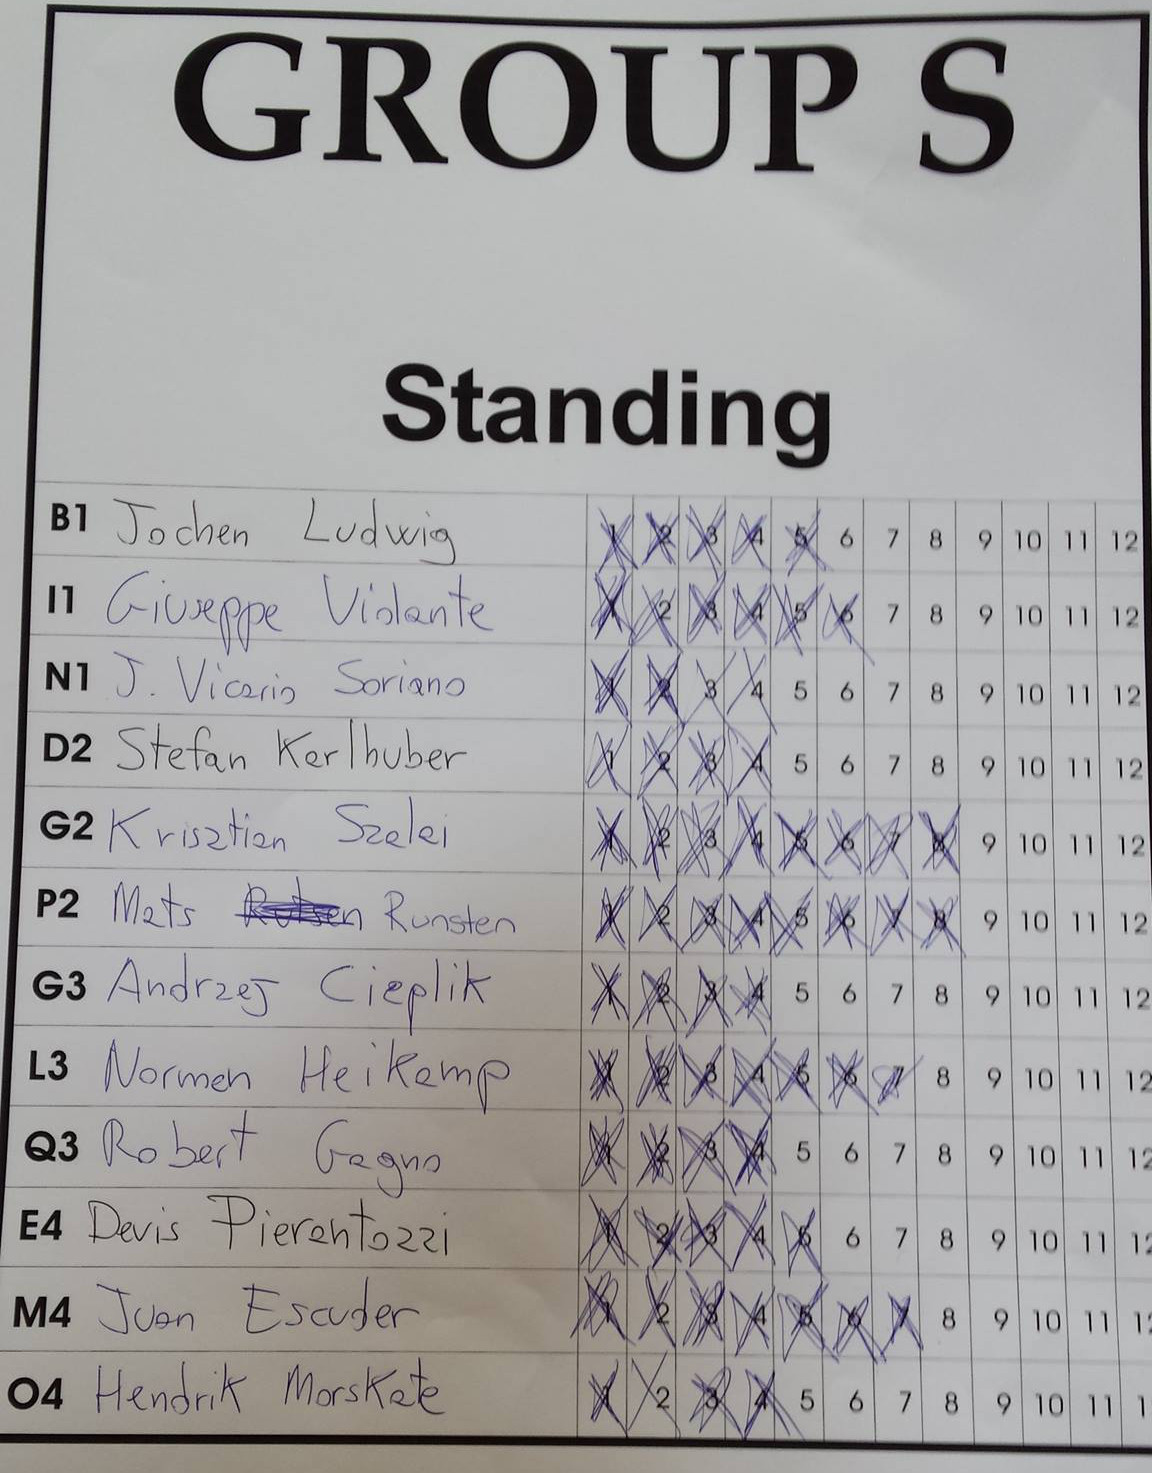 GROUP S
Standing
B1 Jochen Ludwig 1 2 3 4 5 6 7 8 9 10 11 12
I1 Giuseppe Violante 1 2 3 4 5 6 7 8 9 10 11 12
N1 J. Vicario Soriano 1 2 3 4 5 6 7 8 9 10 11 12
D2 Stefan Karlhuber 1 2 3 4 5 6 7 8 9 10 11 12
G2 Krisztian Szalai 1 2 3 4 5 6 7 8 9 10 11 12
P2 Mats Runsten 1 2 3 4 5 6 7 8 9 10 11 12
G3 Andrzej Cieplik 1 2 3 4 5 6 7 8 9 10 11 12
L3 Norman Heikamp 1 2 3 4 5 6 7 8 9 10 11 12
Q3 Robert Gagno 1 2 3 4 5 6 7 8 9 10 11 12
E4 Davis Pierantozzi 1 2 3 4 5 6 7 8 9 10 11 12
M4 Juan Escuder 1 2 3 4 5 6 7 8 9 10 11 12
O4 Hendrik Morskate 1 2 3 4 5 6 7 8 9 10 11 1